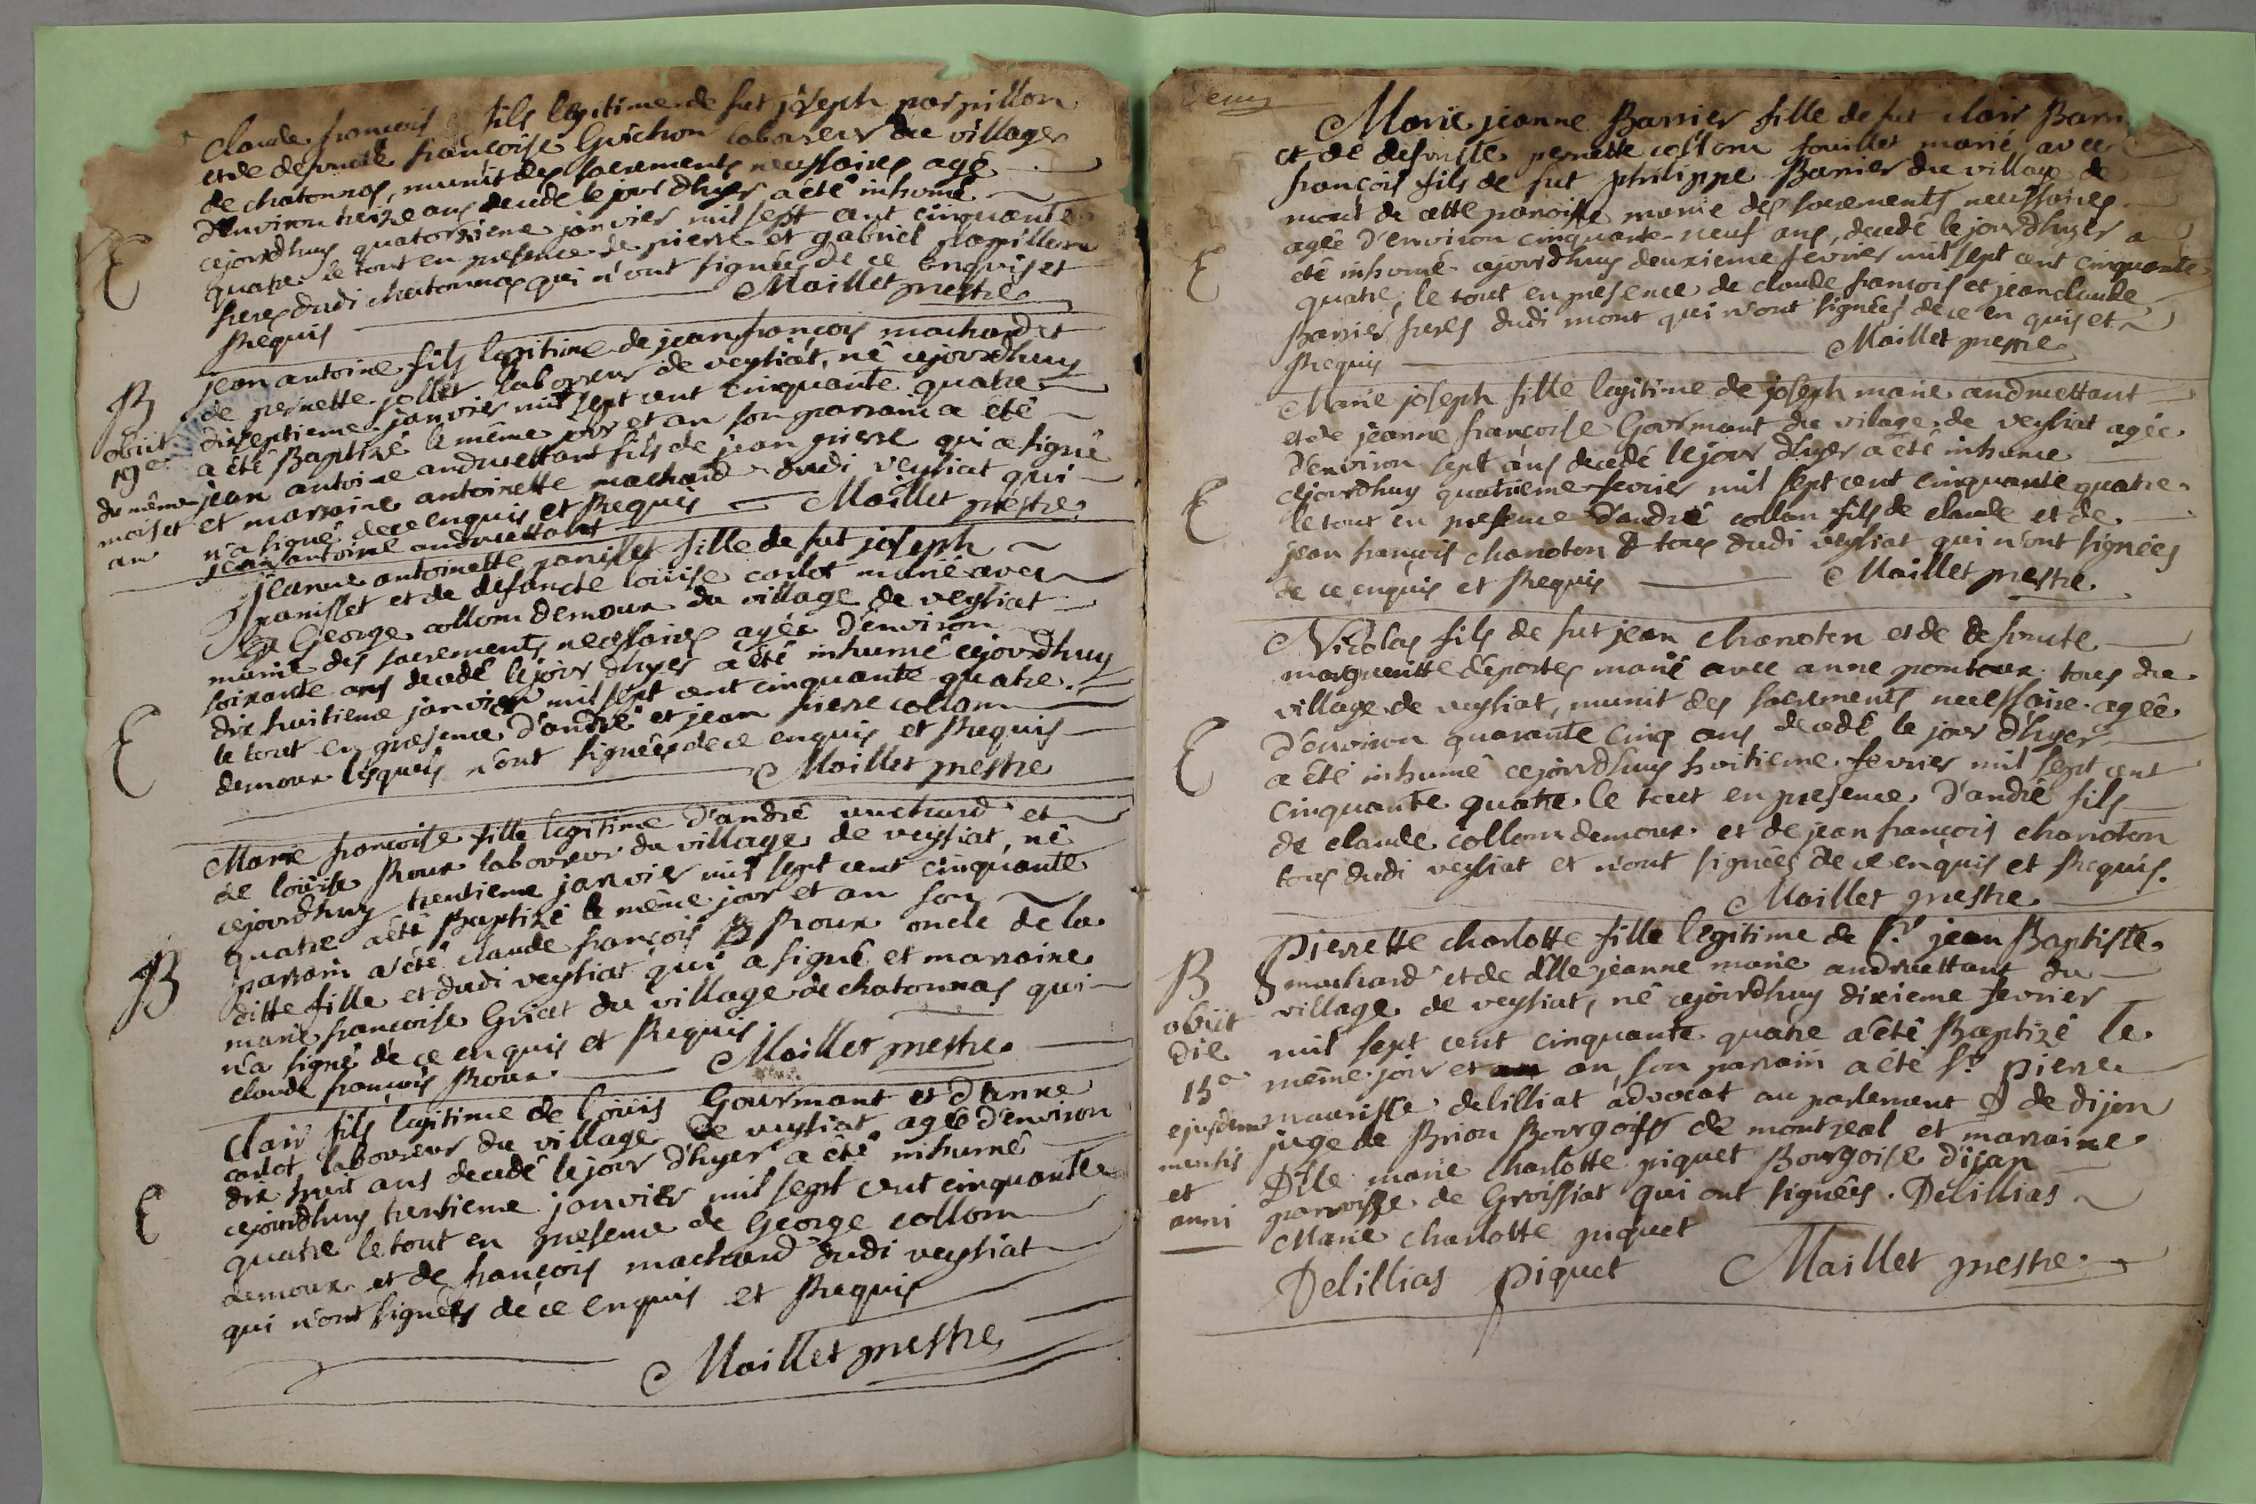 Claude françois fils legitime de fut joseph parpillon
et de defuncte françoise Guichon laboureur du village
de chatonnas, munit des sacrements necessaires agé
d'environ treize ans decedé le jour d'hyer a été inhumé
cejourdhuy quatorzieme janvier mil sept cent cinquante
quatre le tout en presence de pierre et gabriel papillon
freres dudi chatonnas qui n'ont signées de ce enquis et
Requis
Maillet prestre
E
jean antoine fils legitime de jean françois machard et
de pernette jollet laboureur de veysiat, né cejourdhuy
dixseptieme janvier mil sept cent cinquante quatre
a été Baptizé le même jour et an son parrain a été
jean antoine andruettant fils de jean pierre qui a signé
et marraine antoinette machard dudi veysiat qui
n'a signé de ce enquis et Requis Maillet prestre
jean antoine andruettant
B
obiit
19e
du même
mois et
an
jeanne antoinette panisset fille de fut joseph
panisset et de defuncte loüise carlot marié avec
George collom demoux du village de veysiat
munie des sacrements necessaires agée d'environ
soixante ans decedé le jour d'hyer a été inhumé cejourdhuy
dix huitieme janvier mil sept cent cinquante quatre
le tout en presence d'andré et jean pierre collom
demoux lesquels n'ont signées de ce enquis et Requis
Maillet prestre
E
Marie françoise fille legitime d'andré vuchard et
de loüise Roux laboureur du village de veysiat, né
cejourdhuy trentieme janvier mil sept cent cinquante
quatre a été Baptizé le même jour et an son
parrain a été claude françois Roux oncle de la
ditte fille et dudi veysiat qui a signé et marraine
marie françoise Griat du village de chatonnas qui
n'a signé de ce enquis et Requis
claude françois Roux Maillet prestre
B
Clair fils legitime de loüis Gourmant et d'anne
carlot laboureur du village de veysiat agé d'environ
dix huit ans decedé le jour d'hyer a été inhumé
cejourdhuy trentieme janvier mil sept cent cinquante
quatre le tout en presence de George collom
demoux et de françois machard dudi veysiat
qui n'ont signées de ce enquis et Requis
Maillet prestre
E
Marie jeanne Barrier fille de fut clair Barri
et de defuncte pernette collom fouillet marié avec
françois fils de fut philippe Barrier du village de
mont de cette paroisse munie des sacrements necessaires
agée d'environ cinquante neuf ans, decedé le jour d'hyer a
été inhumé cejourdhuy deuxieme fevrier mil sept cent cinquante
quatre, le tout en presence de claude françois et jean claude
Barrier freres dudi mont qui n'ont signées de ce en quis et
Requis Maillet prestre
E
Marie joseph fille legitime de joseph marie andruettant
et de jeanne françoise Gourmant du vilage de veysiat agée
d'environ sept ans decedé le jour d'hyer a été inhume
cejourdhuy quatrieme fevrier mil sept cent cinquante quatre
le tout en presence d'andré collom fils de claude et de
jean françois chanoton tous dudi veysiat qui n'ont signées
de ce enquis et Requis Maillet prestre
E
Nicolas fils de fut jean chanoten et de defuncte
margueritte déportes marié avec anne pontoux tous du
village de veysiat, munit des sacrements necessaire agée
d'environ quarante cinq ans decedé le jour d'hyer
a été inhumé cejourdhuy huitieme fevrier mil sept cent
cinquante quatre le tout en presence d'andré fils
de claude collom demoux et de jean françois chanoton
tous dudi veysiat et n'ont signées de ce enquis et Requis.
Maillet prestre
E
Pierrette charlotte fille legitime de Sr jean Baptiste
machard et de dlle jeanne marie andruettant du
village de veysiat, né cejourdhuy dixieme fevrier
mil sept cent cinquante quatre a été Baptizé le
même jour et an, son parrain a été Sr pierre
maurisse delilliat advocat au parlement de dijon
juge de Brion Bourgois de montreal et marraine
Dlle marie charlotte piquet Bourgoise d'isan
parroisse de Groissiat qui ont signées. Delillias
Marie charlotte piquet
Delillias piquet Maillet prestre
B
obiit
die
15a
ejusdem
mensis
et
anni